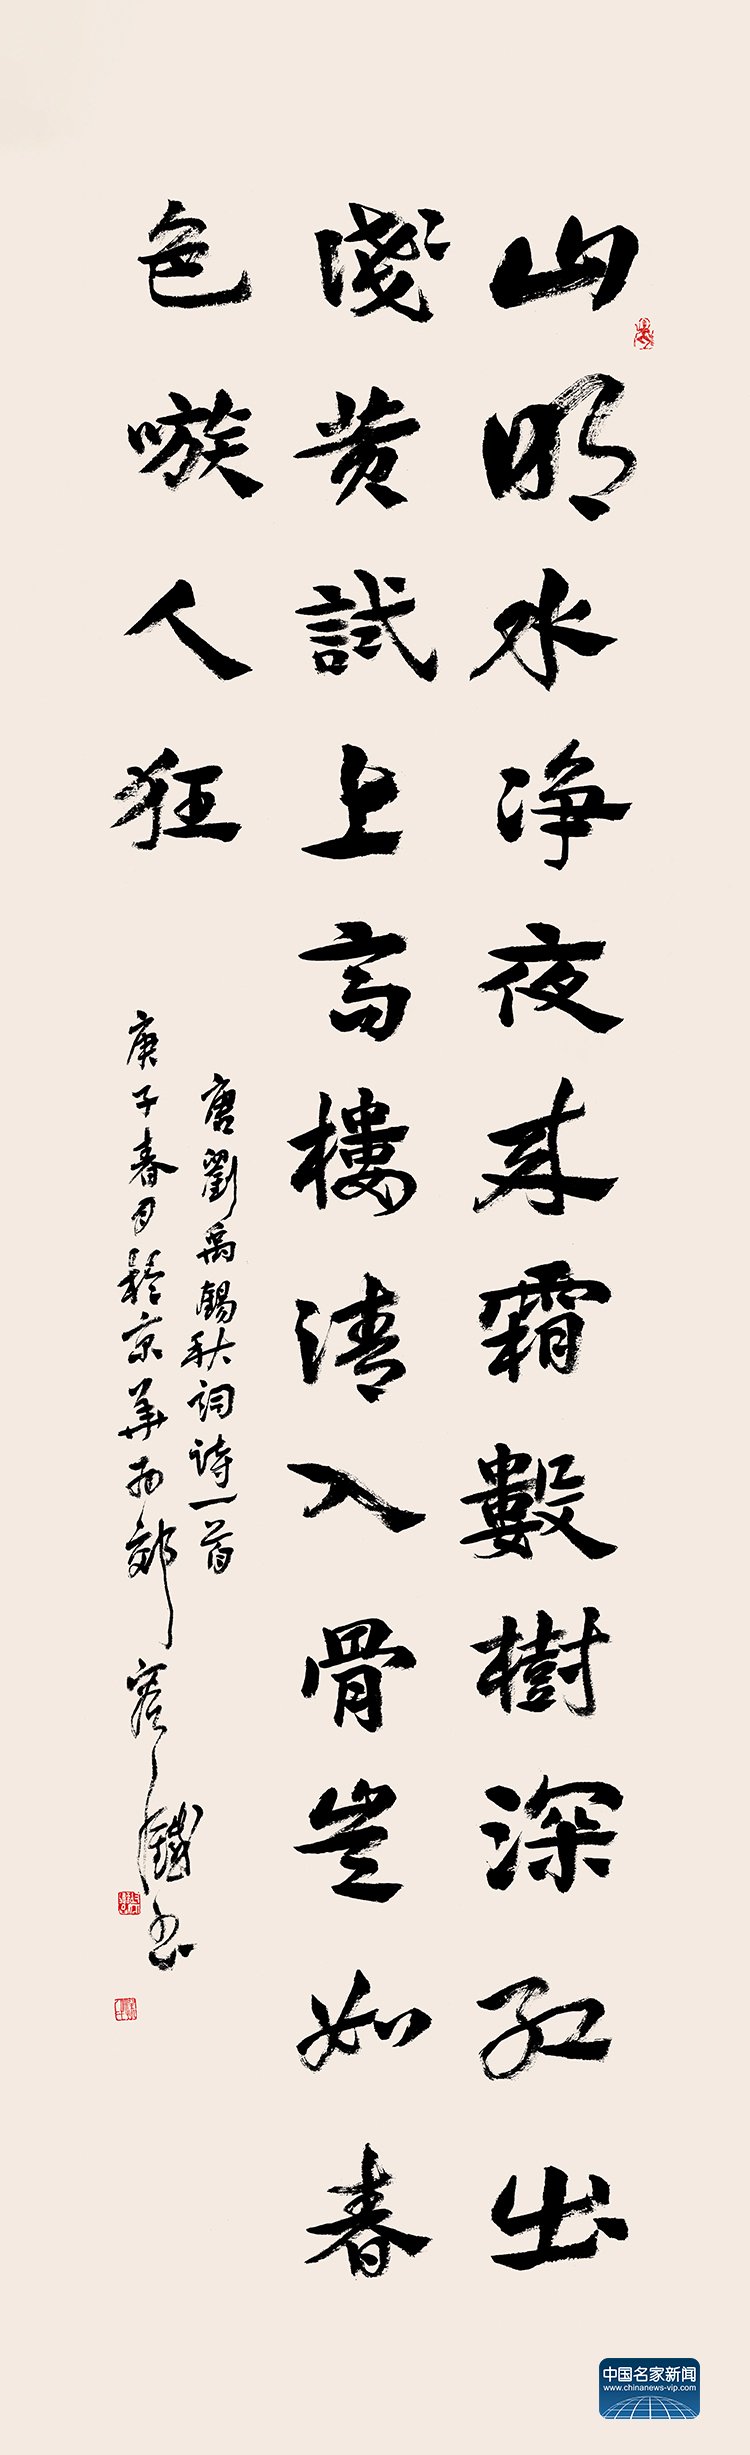 山明水净夜来霜數樹深红出
淺〻黄試上高樓清入骨豈如春
色嗾人狂
唐劉禹錫秋詞詩一首
庚子春月於京華西郊 鐵书
中国名家新闻
www.chinanews-vip.com